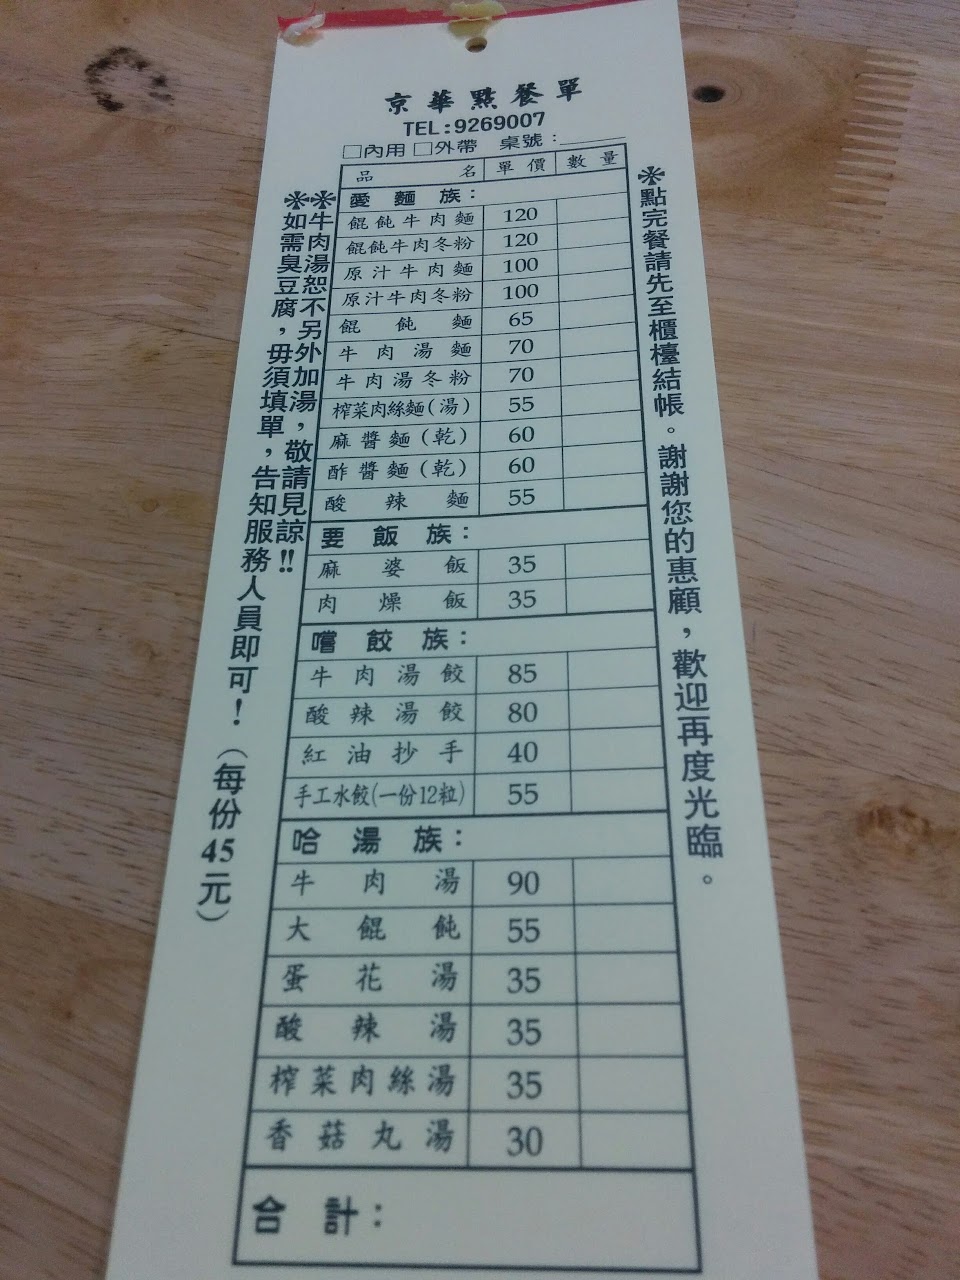 京華點餐單
TEL:9269007
□內用 □外帶 桌號：
品名 單價 數量
愛麵族：
餛飩牛肉麵 120
餛飩牛肉冬粉 120
原汁牛肉麵 100
原汁牛肉冬粉 100
餛飩麵 65
牛肉湯麵 70
牛肉湯冬粉 70
榨菜肉絲麵(湯) 55
麻醬麵(乾) 60
酢醬麵(乾) 60
酸辣麵 55
要飯族：
麻婆飯 35
肉燥飯 35
嚐餃族：
牛肉湯餃 85
酸辣湯餃 80
紅油抄手 40
手工水餃(一份12粒) 55
哈湯族：
牛肉湯 90
大餛飩 55
蛋花湯 35
酸辣湯 35
榨菜肉絲湯 35
香菇丸湯 30
合計：
※點完餐請先至櫃檯結帳。謝謝您的惠顧，歡迎再度光臨。
※牛肉湯恕不另外加湯，敬請見諒!!
※如需臭豆腐，毋須填單，告知服務人員即可！（每份45元）